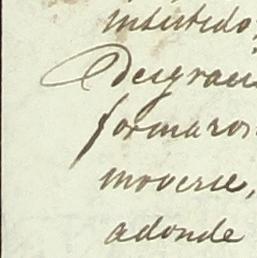 insistido,
Desgraci
formaron
moverse,
adonde